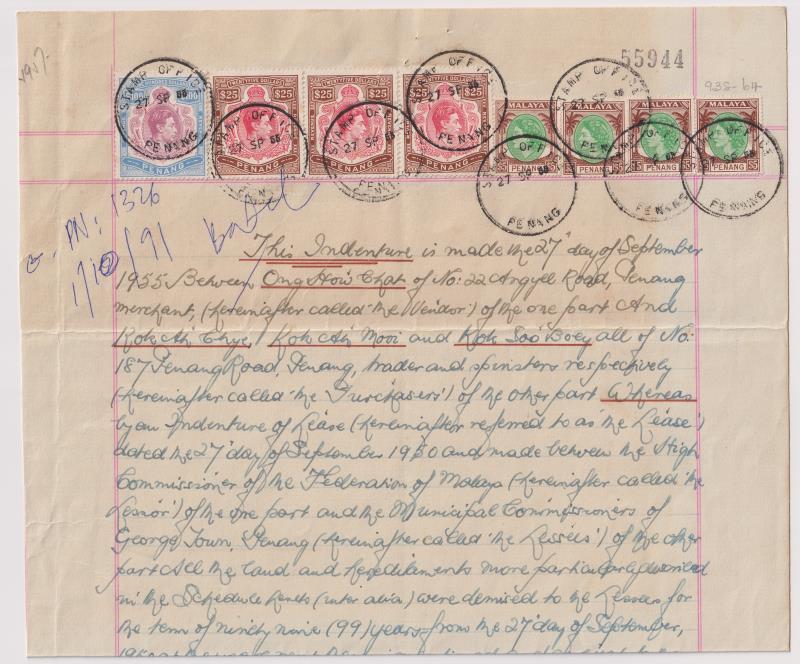 55944
935-64
STAMP OFFICE
27 SP 55
PENANG
$25
TWENTYFIVE DOLLARS
PENANG
$25
TWENTYFIVE DOLLARS
PENANG
$25
TWENTYFIVE DOLLARS
PENANG
MALAYA
PENANG
MALAYA
PENANG
MALAYA
PENANG
MALAYA
PENANG
$5
STAMP OFFICE
27 SP
PENANG
PN: 1326
1/10/91
This Indenture is made the 27th day of September
1955 Between Ong How Chat of No: 22 Argyll Road, Penang
merchant, (hereinafter called 'the Vendor') of the one part And
Kok Ah Thye, Kok Ah Mooi and Kok Soo Boey all of No:
187 Penang Road, Penang, trader and spinsters respectively
(hereinafter called 'the Purchasers') of the other part Whereas
by an Indenture of Lease (hereinafter referred to as 'the Lease')
dated the 27th day of September 1950 and made between the High
Commissioner of the Federation of Malaya (hereinafter called 'the
Lessor') of the one part and the Municipal Commissioners of
George Town, Penang (hereinafter called 'the Lessees') of the other
part All the land and hereditaments more particularly described
in the Schedule hereto (inter alia) were demised to the Lessees for
the term of ninety nine (99) years from the 27th day of September,
1950